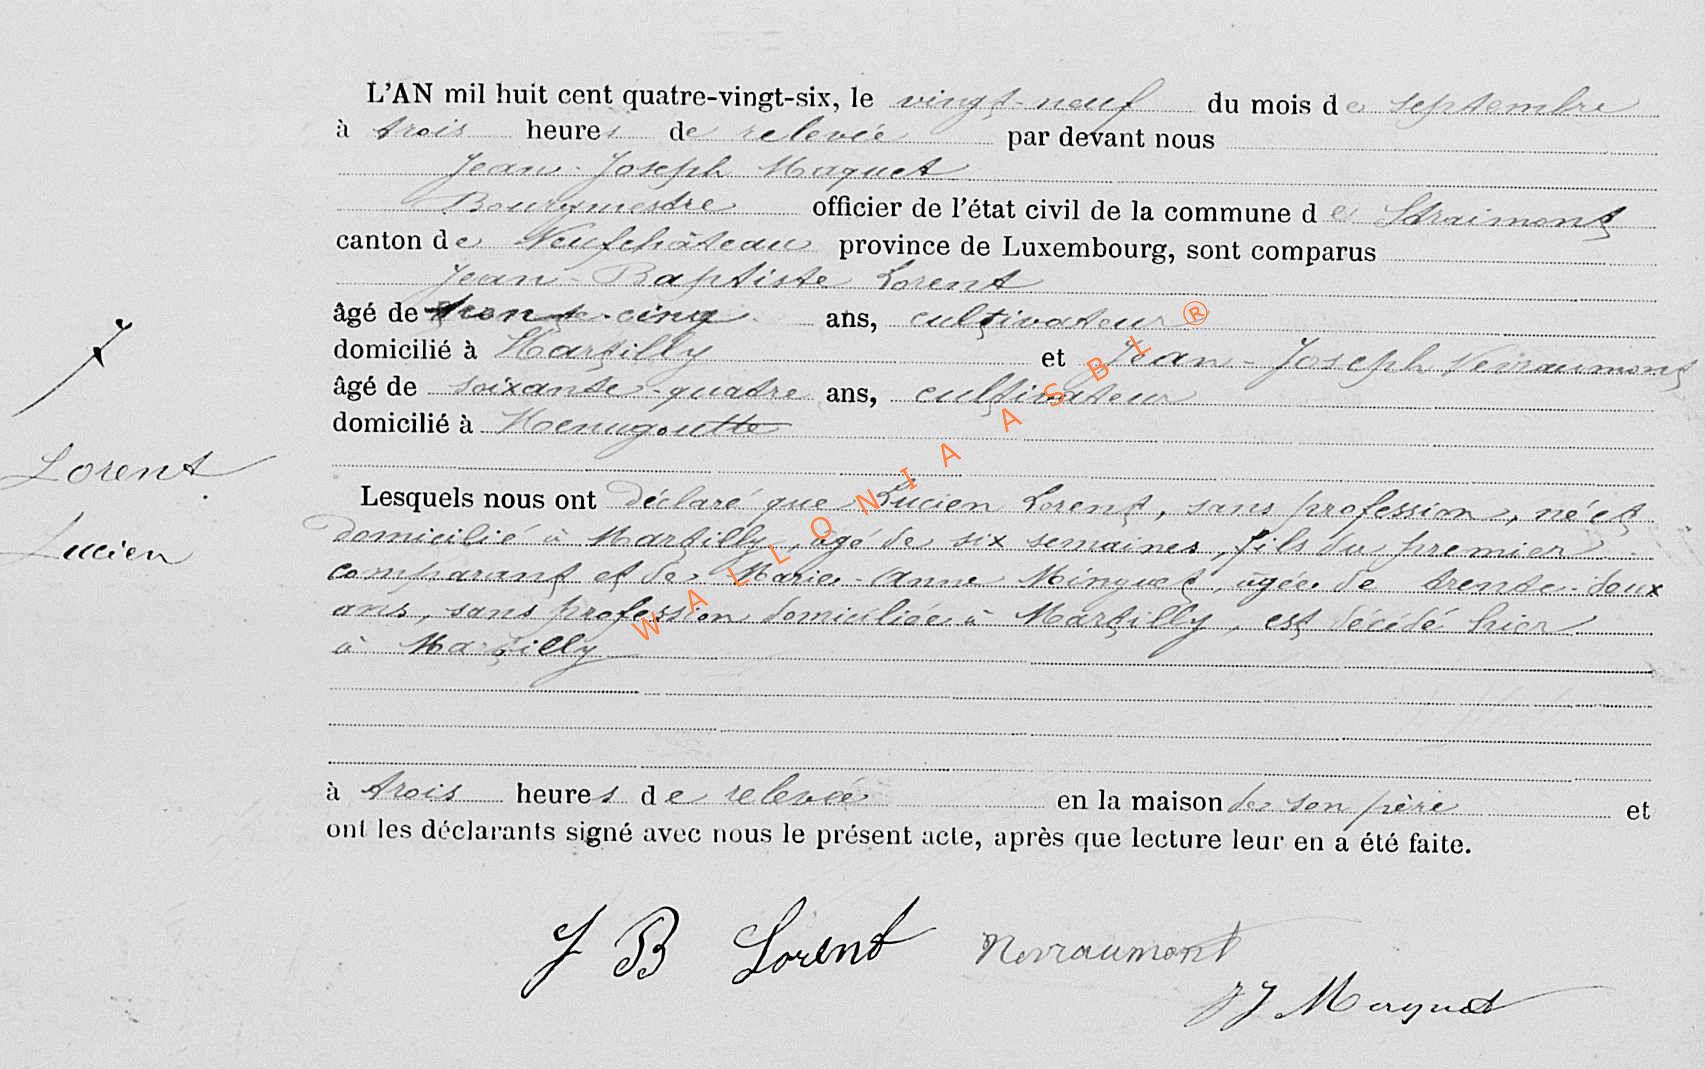 L'AN mil huit cent quatre-vingt-six, le vingt-neuf du mois de septembre
à trois heures de relevée par devant nous
Jean-Joseph Maquet
Bourgmestre officier de l'état civil de la commune de Straimont
canton de Neufchâteau province de Luxembourg, sont comparus
Jean-Baptiste Lorent
âgé de trente-cinq ans, cultivateur
domicilié à Martilly et Jean-Joseph Nevraumont
âgé de soixante-quatre ans, cultivateur
domicilié à Menugoutte
Lorent
Lesquels nous ont déclaré que Lucien Lorent, sans profession, né et
Lucien
domicilié à Martilly, âgé de six semaines, fils du premier
comparant et de Marie-Anne Minguet, âgée de trente-deux
ans, sans profession domiciliée à Martilly, est décédé hier
à Martilly
à trois heures de relevée en la maison de son père et
ont les déclarants signé avec nous le présent acte, après que lecture leur en a été faite.
J B Lorent Nevraumont
JJ Maquet
WALLONIA ASBL ®